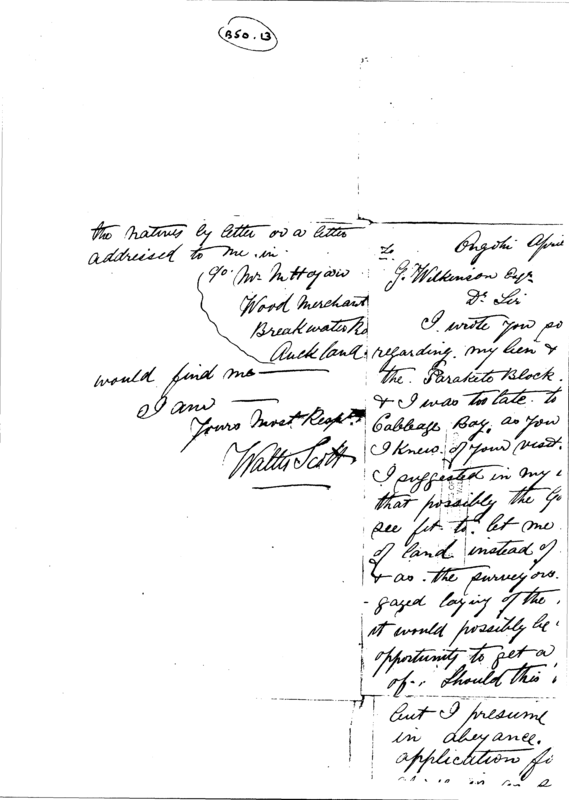 B50.13
the natives by letter or a letter
addressed to me in
c/o Mr
Wood Merchant
Breakwater Ro
Auckland.
would find me
I am
Yours Most Respt.
Walter Scott
To Ongohi Apri
G. Wilkinson Esqr
Dr Sir
I wrote you so
regarding my lien &
the Parakete Block.
& I was too late to
Cabbage Bay, as you
I knew of your visit.
I suggested in my
that possibly the Go
see fit to let me
of land instead of
& as the surveyors
gaged laying of the
it would possibly be
opportunity to get a
of. Should this
but I presume
in abeyance.
application fi